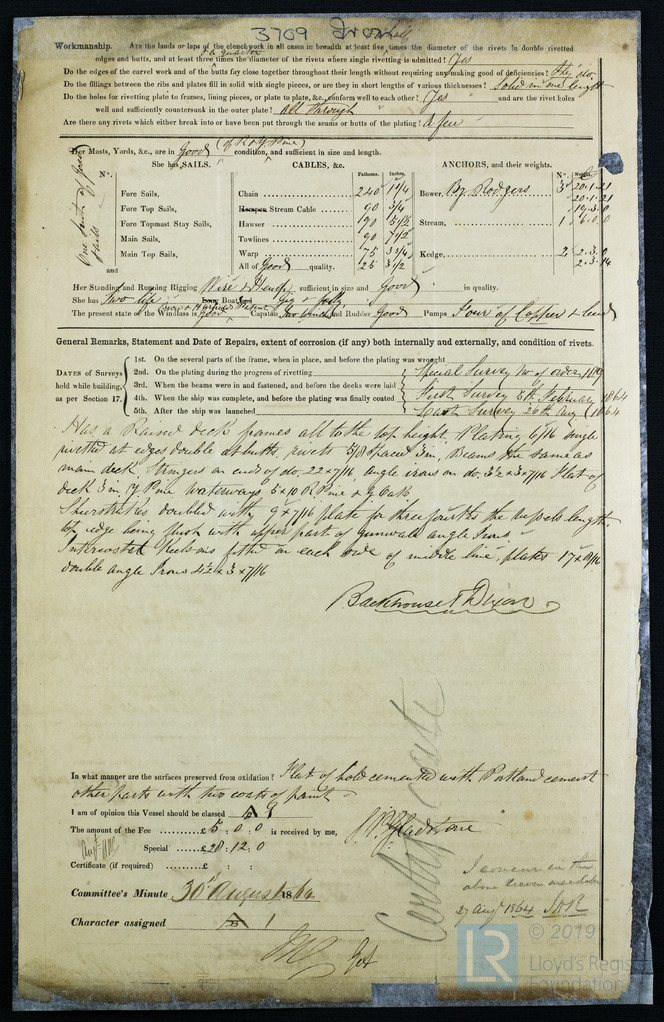 3709 Iron
Workmanship. Are the lands or laps of the clenchwork in all cases in breadth at least five times the diameter of the rivets in double rivetted
edges and butts, and at least three & a quarter times the diameter of the rivets where single rivetting is admitted? Yes
Do the edges of the carvel work and of the butts fay close together throughout their length without requiring any making good of deficiencies? they do
Do the fillings between the ribs and plates fill in solid with single pieces, or are they in short lengths of various thicknesses? Solid in one length
Do the holes for rivetting plate to frames, lining pieces, or plate to plate, &c. conform well to each other? Yes and are the rivet holes
well and sufficiently countersunk in the outer plate? All through
Are there any rivets which either break into or have been put through the seams or butts of the plating? A few
Her Masts, Yards, &c., are in Good (of R & Y Pine) condition, and sufficient in size and length.
She has SAILS. CABLES, &c. ANCHORS, and their weights.
No. Fathoms. Inches. No. Weights
One suit of good sails
Fore Sails, Chain 240 1 1/4 Bower, By Rodgers 3 20.1.21
20.1.21
Fore Top Sails, Hempen Stream Cable 90 3/4 19.3.0
Fore Topmast Stay Sails, Hawser 190 5 1/2 Stream, 1 6.0.0
Main Sails, Towlines 90 7 1/2
Main Top Sails, Warp 75 3 3/4 Kedge, 2 2.3.0
and All of Good quality. 25 3 1/2 2.3.14
Her Standing and Running Rigging Wire & Hemp sufficient in size and Good in quality.
She has Two life Long Boat and Gig & Jolly
The present state of the Windlass is Good Capstan Two Winches and Rudder Good Pumps Four of Copper & Lead
General Remarks, Statement and Date of Repairs, extent of corrosion (if any) both internally and externally, and condition of rivets.
DATES of Surveys held while building, as per Section 17.
1st. On the several parts of the frame, when in place, and before the plating was wrought
2nd. On the plating during the progress of rivetting Special Survey No of order 1109
3rd. When the beams were in and fastened, and before the decks were laid First Survey 5th February 1864
4th. When the ship was complete, and before the plating was finally coated
5th. After the ship was launched Last Survey 26th Aug 1864
Has a Raised deck frames all to the top height. Plating 6/16 single
rivetted at edges double at butts, rivets 5/8 spaced 3 in, Beams the same as
main deck. Stringers on ends of do. 22 x 7/16 angle irons on do. 3 1/2 x 3 x 7/16 Flat of
deck 3 in. Y. Pine waterways 5 x 10 R Pine &
Sheerstrakes doubled with 9 x 7/16 plate for three fourths the vessels length.
top edge being flush with upper part of gunwale angle Irons.
Intercostal Keelsons fitted on each side of middle line, plates 17 x
double angle Irons 4 1/2 x 3 x 7/16
Backhouse & Dixon
In what manner are the surfaces preserved from oxidation? Flat of hold cemented with Portland cement
other parts with two coats of paint
I am of opinion this Vessel should be classed A 9
The amount of the Fee £5 : 0 : 0 is received by me,
Special £28 : 12 : 0
Certificate (if required) £ : :
Gladstone
I concur in the
above
27 Aug 1864
Committee's Minute 30th August 1864
Character assigned A 1
© 2019
LR
Lloyd's Register
Foundation